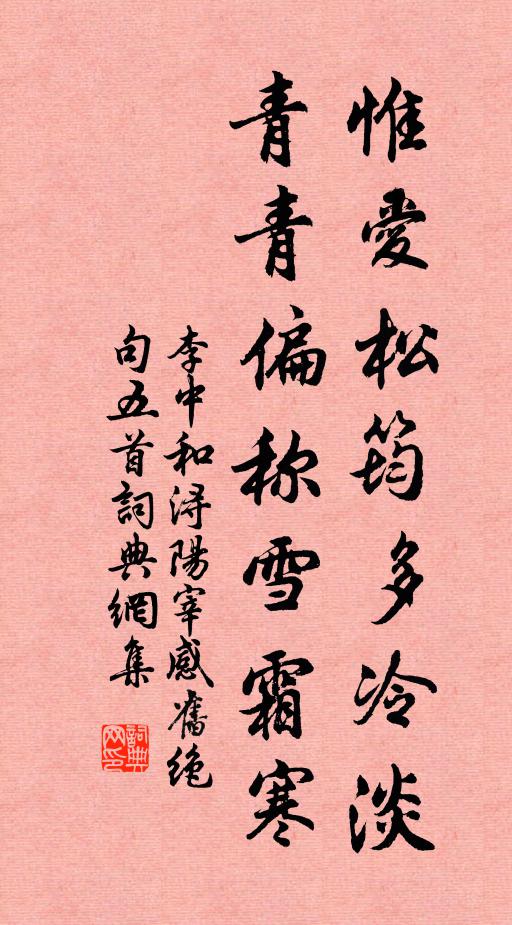 惟愛松筠多冷淡
青青偏称雪霜寒
李中和潯陽宰感舊絶
句五首詞典網集
詞典網印